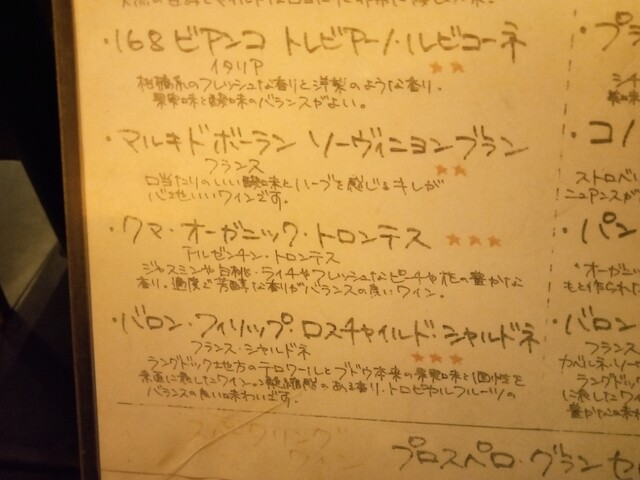 ・168 ビアンコ トレビアーノ・ルビコーネ
イタリア ★★
柑橘系のフレッシュな香りと洋梨のような香り.
果実味と酸味のバランスがよい。
・マルキドボーラン ソーヴィニヨンブラン
フランス ★★
口当たりのいい酸味とハーブを感じるキレが
心地いいワインです。
・クマ・オーガニック・トロンテス ★★★
アルゼンチン・トロンテス
ジャスミンや白桃・ライチやフレッシュなピーチや花の豊かな
香り. 適度で芳醇な香りがバランスの良いワイン。
・バロン・フィリップ・ロスチャイルド・シャルドネ
フランス・シャルドネ ★★★
ラングドック地方のテロワールとブドウ本来の果実味と個性を
のある香り. トロピカルフルーツの
バランスの良い味わいです。
スパークリング
ワイン
プロスペロ・グラン セ
・プラ
・コノ
ストロベリ
ニュアンスが
・パン
・オーガニ
もと作られた
・バロン
フランス
カベルネ・ソー
ラングド
に熟したワイ
豊かな